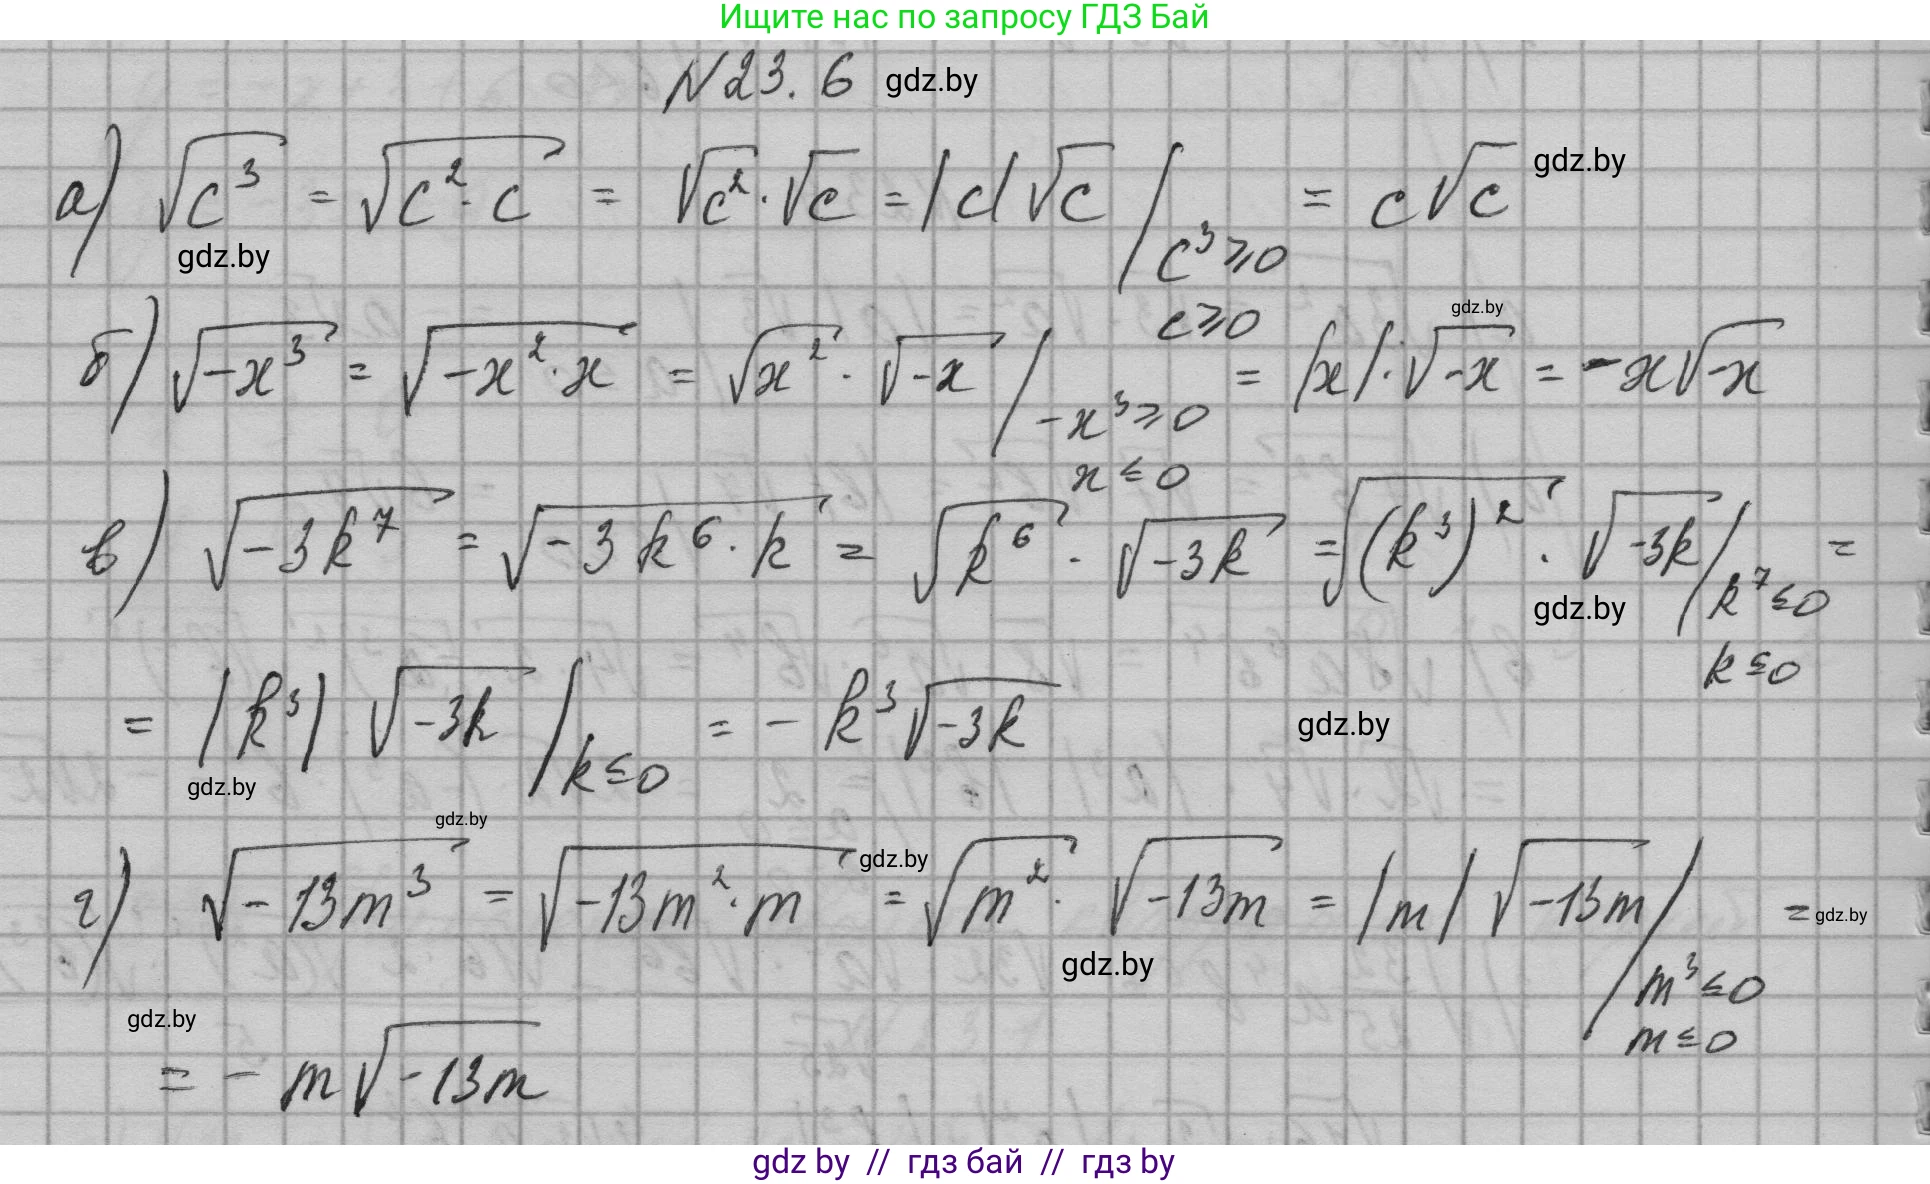 Ищите нас по запросу ГДЗ Бай
N23.6 gdz.by
а) √(c³) = √(c²·c) = √(c²)·√c = |c|√c | c³⩾0 = c√c gdz.by
gdz.by
c⩾0 gdz.by
б) √(-x³) = √(-x²·x) = √(x²)·√(-x) | -x³⩾0 = |x|·√(-x) = -x√(-x)
x≤0
в) √(-3k⁷) = √(-3k⁶·k) = √(k⁶)·√(-3k) = √((k³)²)·√(-3k) | k⁷≤0 =
gdz.by
k≤0
= |k³| √(-3k) | k≤0 = -k³√(-3k) gdz.by
gdz.by
gdz.by
г) √(-13m³) = √(-13m²·m) gdz.by = √(m²)·√(-13m) = |m| √(-13m) | m³≤0 = gdz.by
gdz.by
m≤0
gdz.by
= -m√(-13m)
gdz by // гдз бай // гдз by